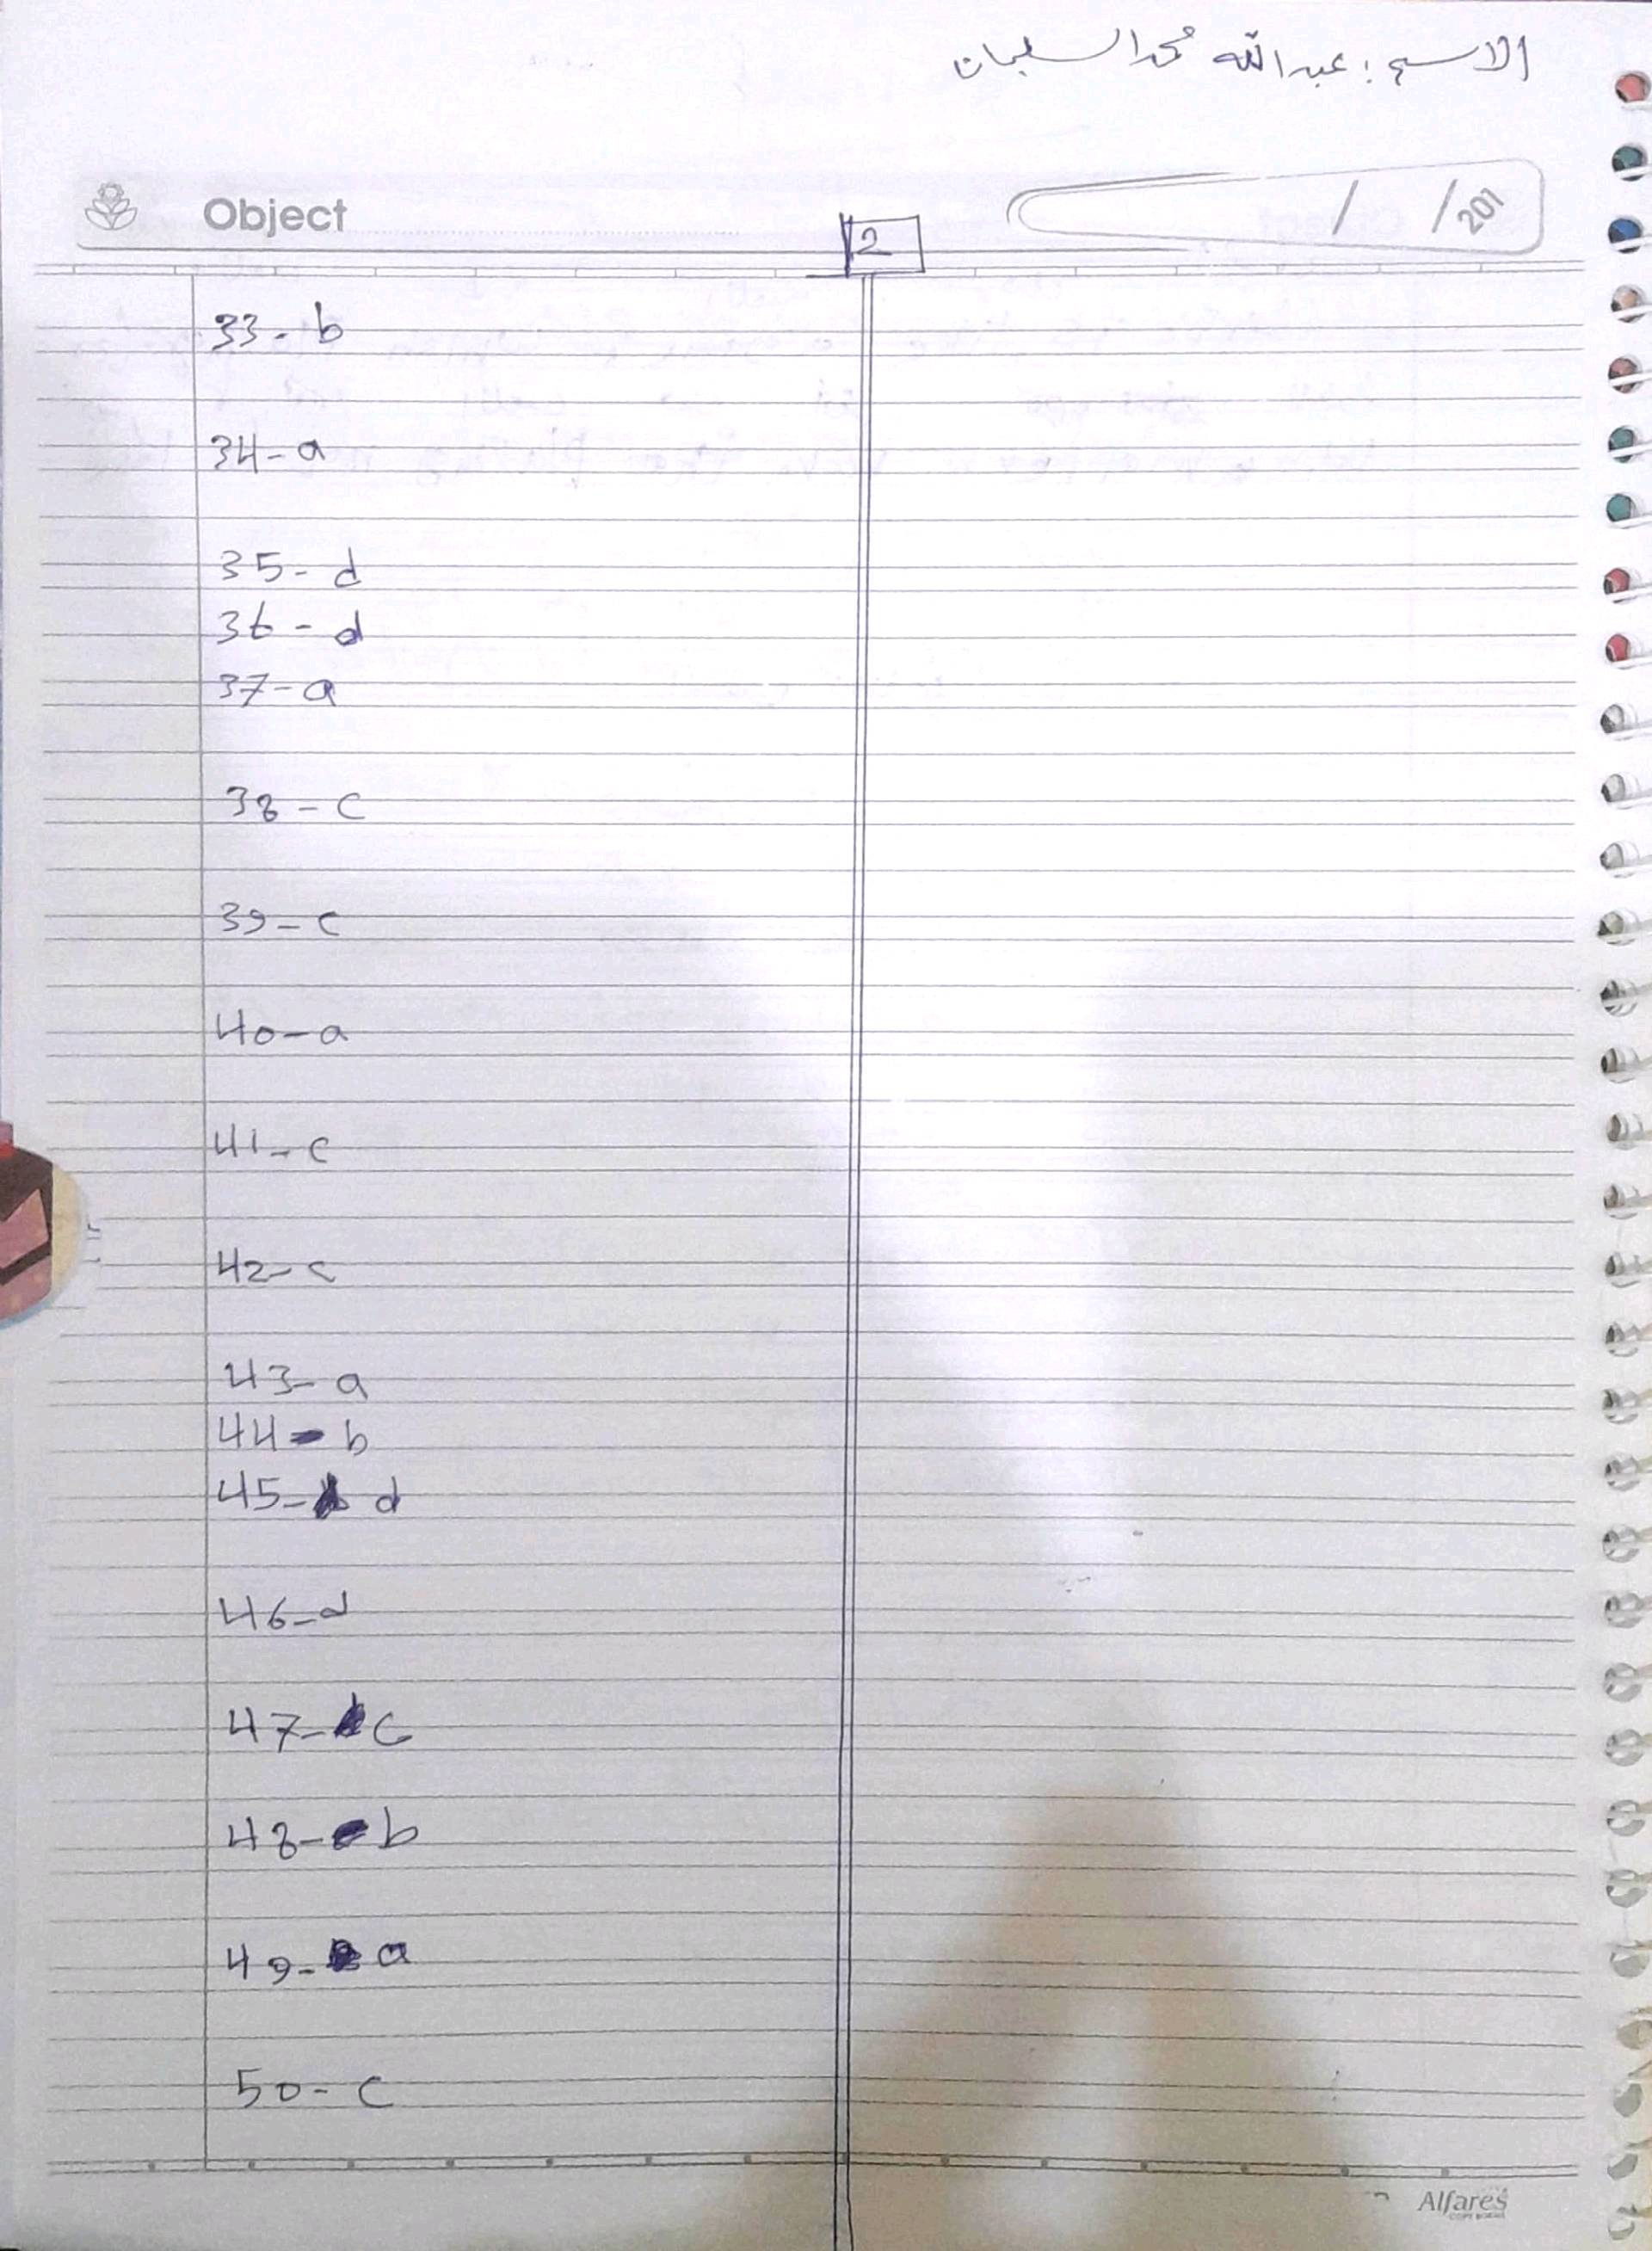 الاسم : عبدالله محمد السليمان
Object
/ /201
2
33- b
34- a
35- d
36 - d
37- a
38 - c
39- c
40- a
41- c
42- c
43- a
44- b
45- d
46- d
47- c
48- b
49- a
50- c
Alfares